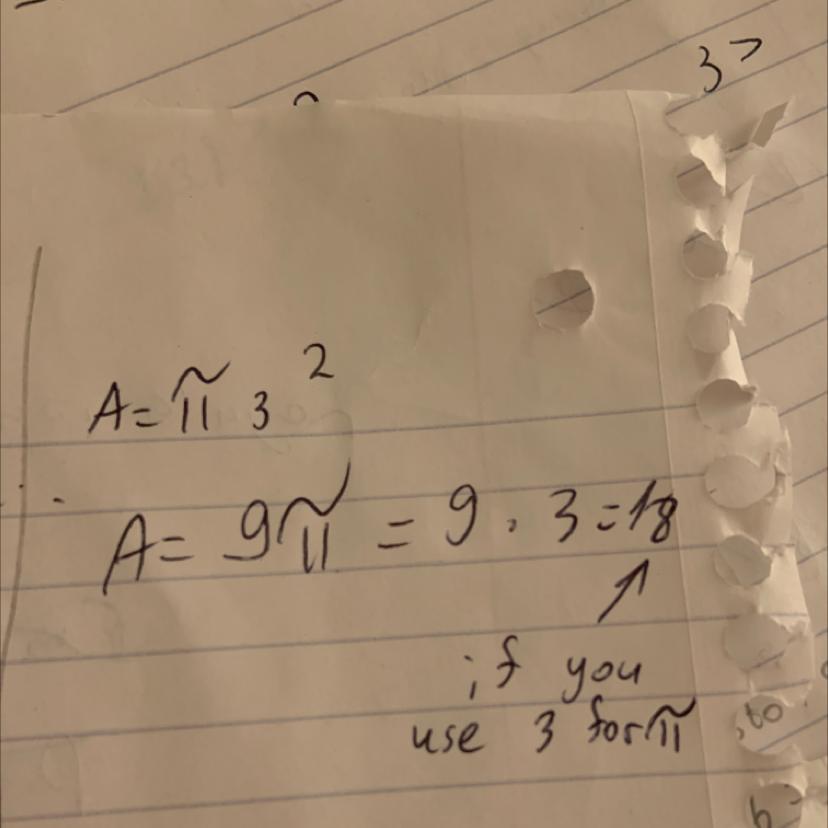 3>
A = π 3²
A = 9π = 9 . 3 = 18
if you
use 3 for π
to